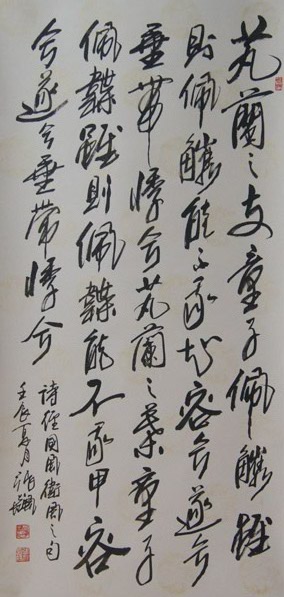 芄蘭之支童子佩觿雖
則佩觿能不我知容兮遂兮
垂帶悸兮芄蘭之葉童子
佩韘雖則佩韘能不我甲容
兮遂兮垂帶悸兮
诗經国風衛風之句
壬辰夏月